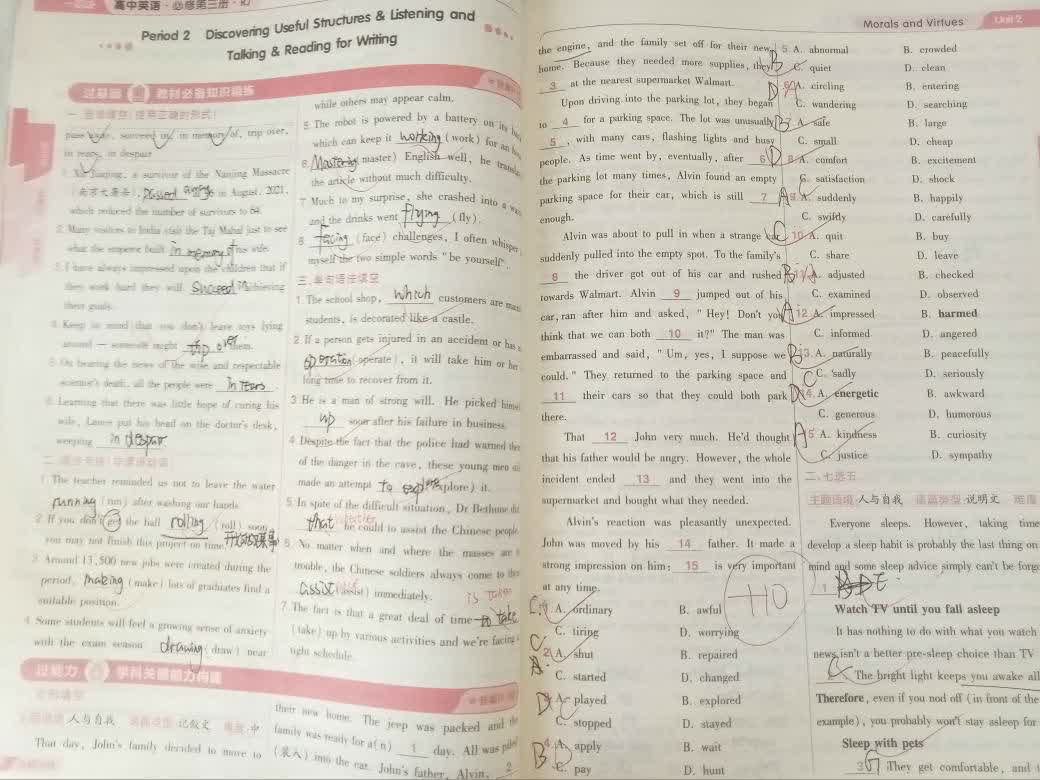 高中英语·必修第三册·RJ
Period 2 Discovering Useful Structures & Listening and
Talking & Reading for Writing
过基础 教材必备知识精练
pass away, succeed in, in memory of, trip over,
in tears, in despair
1. Xie Jiaqing, a survivor of the Nanjing Massacre
(南京大屠杀), passed away in August, 2021,
which reduced the number of survivors to 64.
2. Many visitors to India visit the Taj Mahal just to see
what the emperor built in memory of his wife.
3. I have always impressed upon the children that if
they work hard they will succeed in achieving
their goals.
4. Keep in mind that you don't leave toys lying
around — someone might trip over them.
5. On hearing the news of the wise and respectable
scientist's death, all the people were in tears.
6. Learning that there was little hope of curing his
wife, Lance put his head on the doctor's desk,
weeping in despair.
1. The teacher reminded us not to leave the water
running (run) after washing our hands.
2. If you don't get the ball rolling (roll) soon,
you may not finish this project on time.
3. Around 13,500 new jobs were created during the
period, making (make) lots of graduates find a
suitable position.
4. Some students will feel a growing sense of anxiety
with the exam season drawing (draw) near
while others may appear calm.
5. The robot is powered by a battery on its back
which can keep it working (work) for an
6. Mastering (master) English well, he
the article without much difficulty.
7. Much to my surprise, she crashed into a
and the drinks went flying (fly).
8. Facing (face) challenges, I often whisper
myself the two simple words "be yourself".
三、单句语法填空
1. The school shop, which customers are
students, is decorated like a castle.
2. If a person gets injured in an accident or has
operation (operate), it will take him or her
long time to recover from it.
3. He is a man of strong will. He picked
up soon after his failure in business.
4. Despite the fact that the police had warned
of the danger in the cave, these young men
made an attempt to explore (explore) it.
5. In spite of the difficult situation, Dr Bethune
that he could to assist the Chinese people.
6. No matter when and where the masses are
trouble, the Chinese soldiers always come to
assist (assist) immediately.
7. The fact is that a great deal of time to take
(take) up by various activities and we're facing
tight schedule.
过能力 学科关键能力构建
完形填空
主题语境 人与自我 语篇类型 记叙文
That day, John's family decided to move to
their new home. The jeep was packed and the
family was ready for a(n) 1 day. All was
(装入) into the car. John's father, Alvin, 2
Morals and Virtues Unit 2
the engine, and the family set off for their new
home. Because they needed more supplies, they
3 at the nearest supermarket Walmart.
Upon driving into the parking lot, they began
to 4 for a parking space. The lot was unusually
5, with many cars, flashing lights and busy
people. As time went by, eventually, after 6
the parking lot many times, Alvin found an empty
parking space for their car, which is still 7
enough.
Alvin was about to pull in when a strange car
suddenly pulled into the empty spot. To the family's
8 the driver got out of his car and rushed
towards Walmart. Alvin 9 jumped out of his
car, ran after him and asked, "Hey! Don't you
think that we can both 10 it?" The man was
embarrassed and said, "Um, yes, I suppose we
could." They returned to the parking space and
11 their cars so that they could both park
there.
That 12 John very much. He'd thought
that his father would be angry. However, the whole
incident ended 13 and they went into the
supermarket and bought what they needed.
Alvin's reaction was pleasantly unexpected.
John was moved by his 14 father. It made a
strong impression on him: 15 is very important
at any time.
1. A. ordinary B. awful
C. tiring D. worrying
2. A. shut B. repaired
C. started D. changed
3. A. played B. explored
C. stopped D. stayed
4. A. apply B. wait
C. pay D. hunt
-10
5. A. abnormal B. crowded
C. quiet D. clean
6. A. circling B. entering
C. wandering D. searching
7. A. safe B. large
C. small D. cheap
8. A. comfort B. excitement
C. satisfaction D. shock
9. A. suddenly B. happily
C. swiftly D. carefully
10. A. quit B. buy
C. share D. leave
11. A. adjusted B. checked
C. examined D. observed
12. A. impressed B. harmed
C. informed D. angered
13. A. naturally B. peacefully
C. sadly D. seriously
14. A. energetic B. awkward
C. generous D. humorous
15. A. kindness B. curiosity
C. justice D. sympathy
二、七选五
主题语境 人与自我 语篇类型 说明文 难度
Everyone sleeps. However, taking time
develop a sleep habit is probably the last thing on
mind and some sleep advice simply can't be
1 E.
Watch TV until you fall asleep
It has nothing to do with what you watch
news isn't a better pre-sleep choice than TV
2 The bright light keeps you awake all
Therefore, even if you nod off (in front of the
example), you probably won't stay asleep for
Sleep with pets
3 G They get comfortable, and